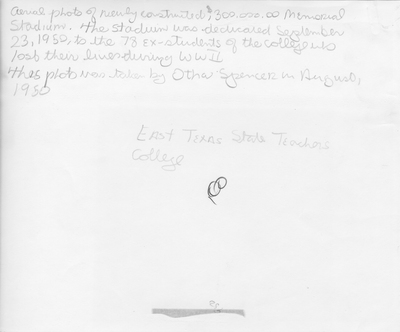 aerial photo of newly constructed $300,000.00 Memorial
Stadium. The stadium was dedicated September
23, 1950, to the 73 ex-students of the college who
lost their lives during WW II
this photo was taken by Otha Spencer in August,
1950
EAST TEXAS State Teachers
College